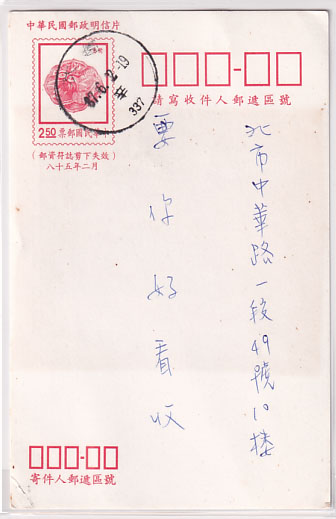 中華民國郵政明信片
2.50 中華民國郵票
(郵資符誌剪下失效)
八十五年二月
87.6.12-19
337
請寫收件人郵遞區號
北市中華路一段49號10樓
要你好看收
寄件人郵遞區號